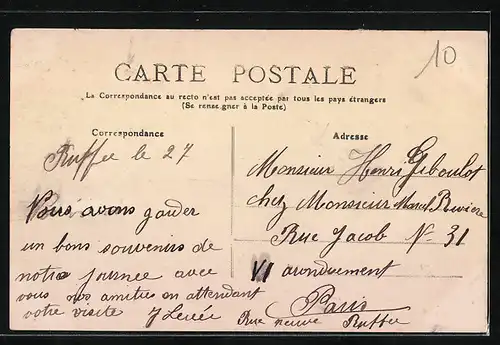 10
CARTE POSTALE
La Correspondance au recto n'est pas acceptée par tous les pays étrangers
(Se renseigner à la Poste)
Correspondance
Ruffec le 27
Nous avons garder
un bons souvenirs de
notre journee avec
vous nos amities en attendant
votre visite
J Levée
Rue neuve Ruffec
Adresse
Monsieur Henri Geboulot
chez Monsieur Marcel Riviere
Rue Jacob N- 31
VI arondicement
Paris